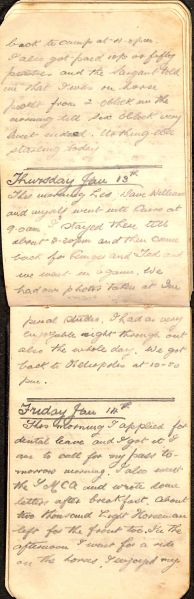 back to camp at 11-30pm.
I also got paid 10/0 or fifty
piastres and the Sergant told
me that I was on horse
picket from 2 oclock in the
morning till six oclock very
sweet indeed. Nothing else
startling today
Thursday Jan 13th
This morning Les, Dave Williams
and myself went into Cairo at
9-0am I stayed there till
about 2-30pm and then came
back for Genger and Ted and
we went in again. We
had our photos taken at Im-
perial Studios. I had a very
enjoyable night through out
also the whole day. We got
back to Heliopolis at 10-30
pm.
Friday Jan 14th
This morning I applied for
dental leave and I got it I
am to call for my pass to-
morrow morning. I also went
the Y.M.C.A. and wrote some
letters after breakfast. About
two thousand Light Horseman
left for the front too. In the
afternoon I went for a ride
on the horses, I enjoyed my